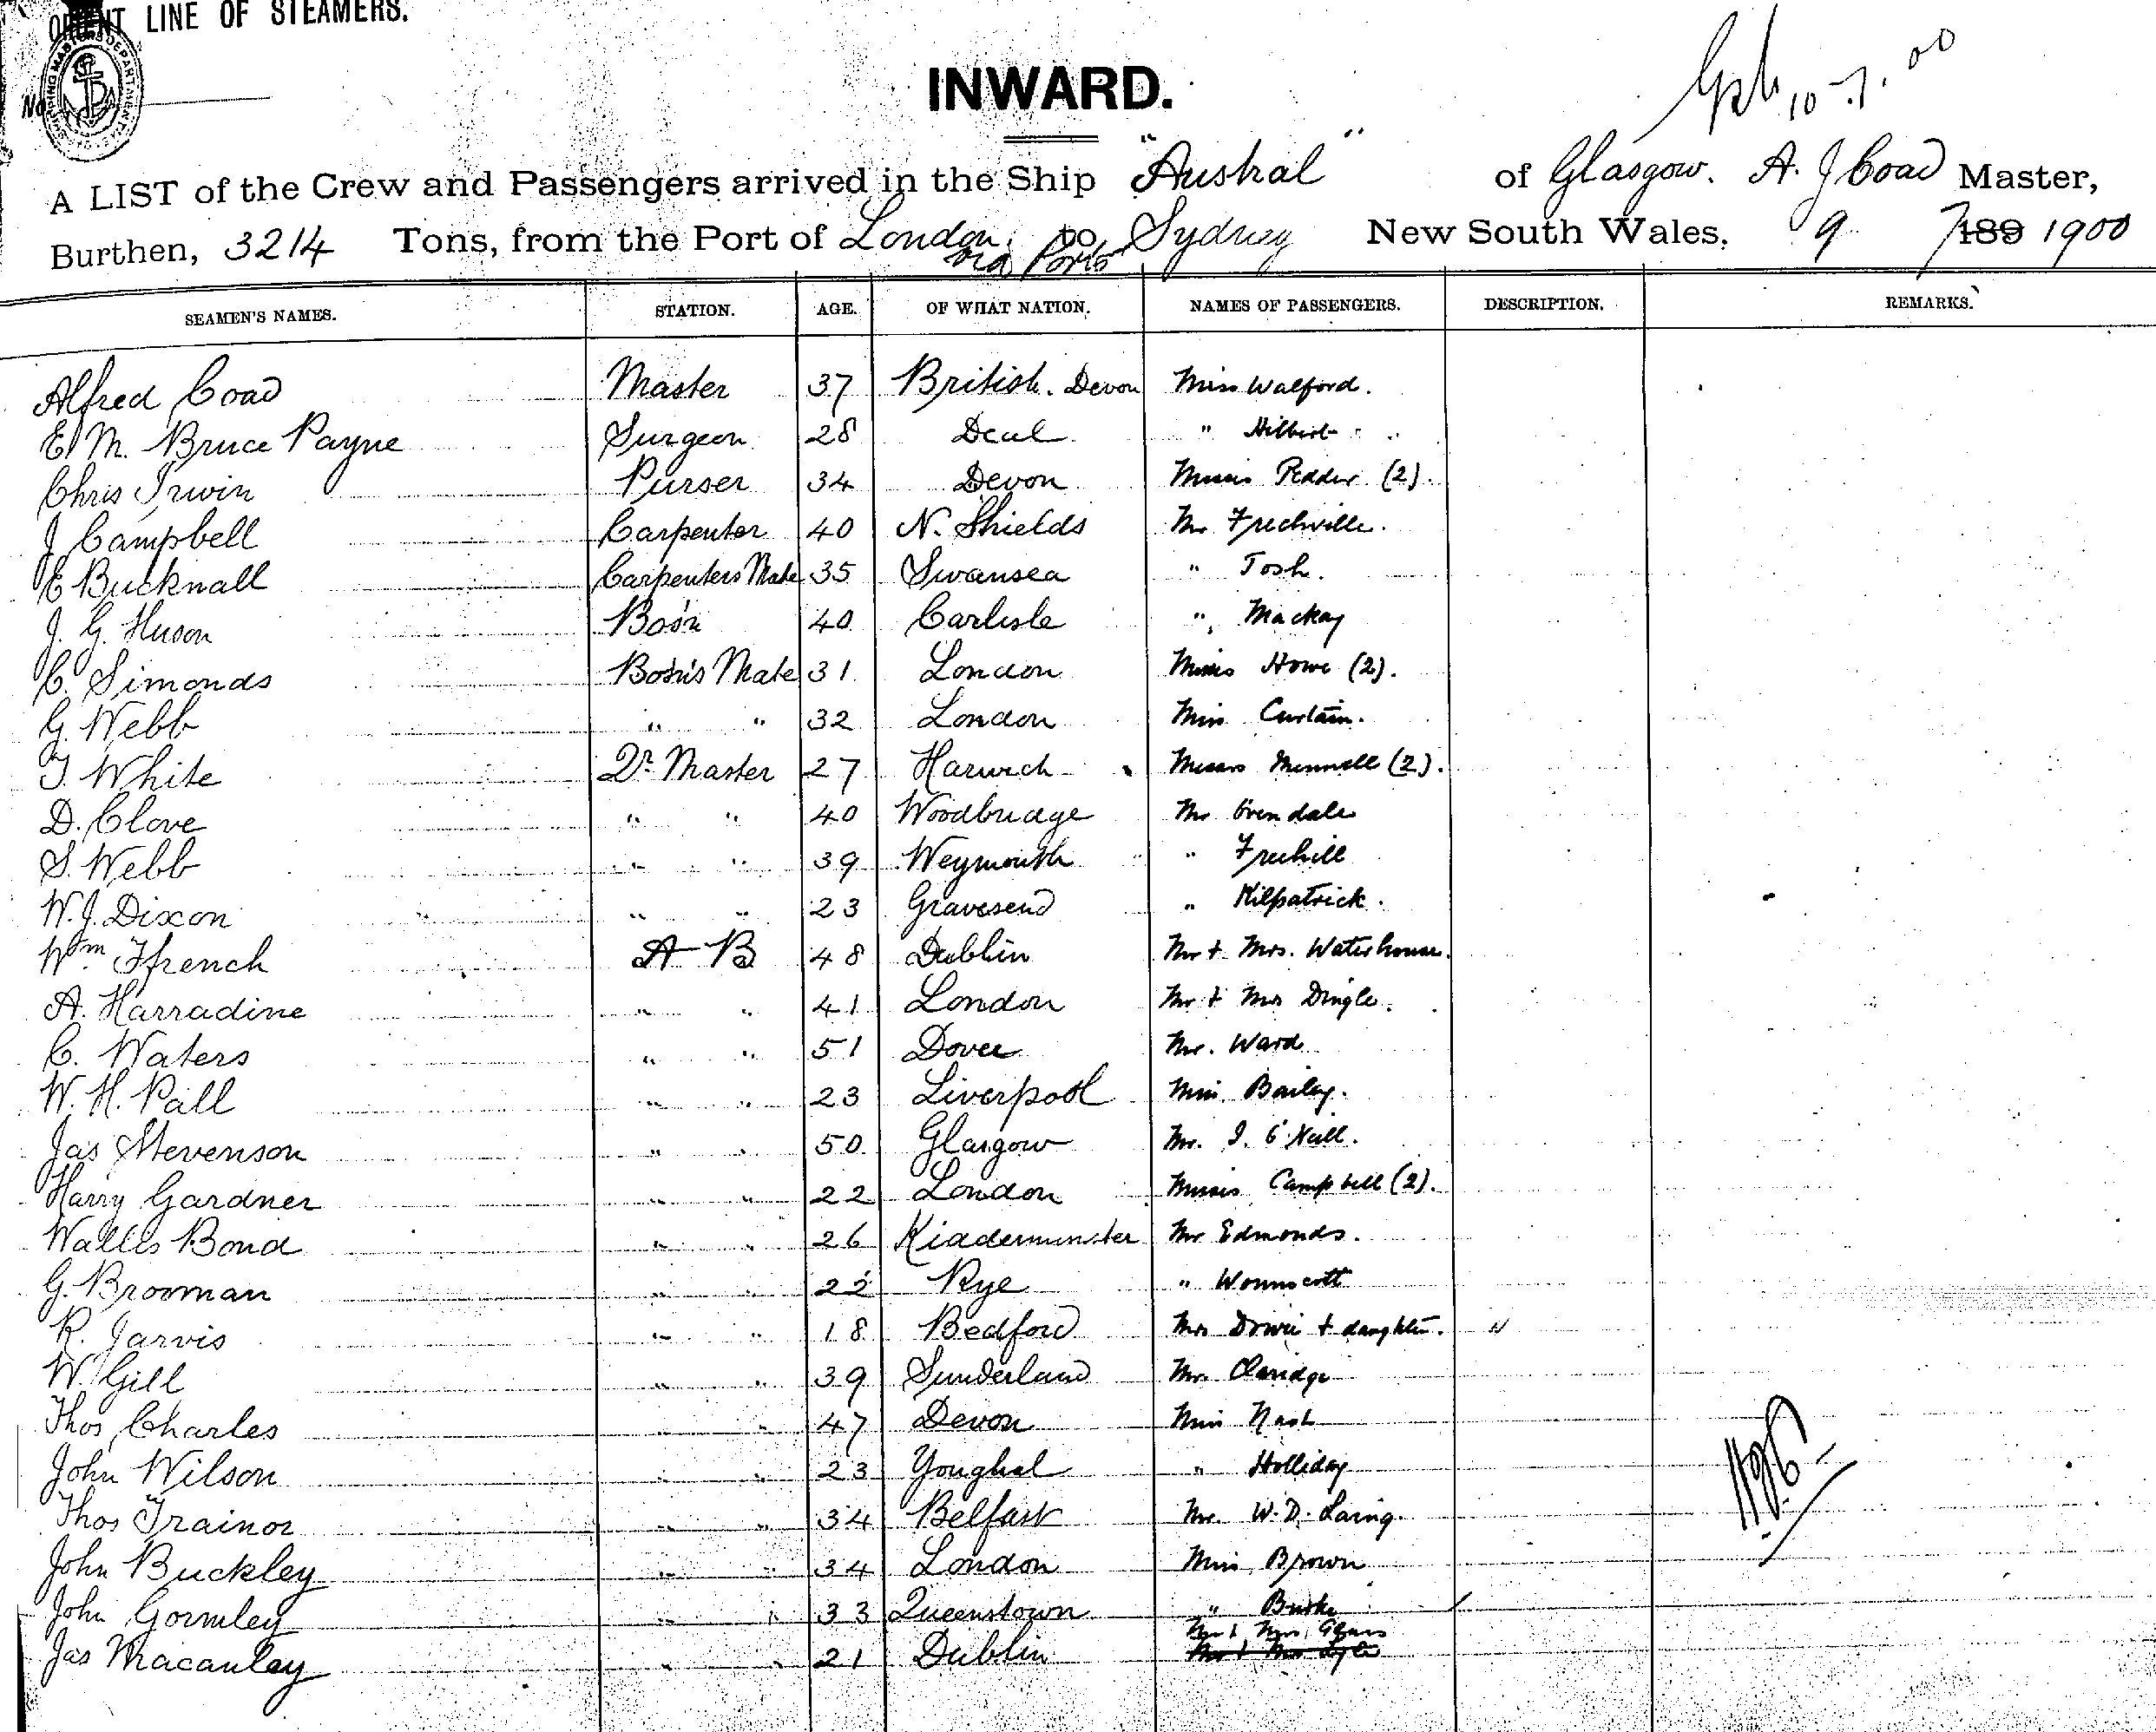 ORIENT LINE OF STEAMERS.
No
INWARD.
10.7.00
A LIST of the Crew and Passengers arrived in the Ship "Austral" of Glasgow. A. J Coad Master,
Burthen, 3214 Tons, from the Port of London via Ports to Sydney New South Wales, 9 7 189 1900
SEAMEN'S NAMES. STATION. AGE. OF WHAT NATION. NAMES OF PASSENGERS. DESCRIPTION. REMARKS.
Alfred Coad Master 37 British. Devon Miss Walford.
E M. Bruce Payne Surgeon 28 Deal " Hilbert
Chris Irwin Purser 34 Devon Misses Pedder (2).
J Campbell Carpenter 40 N. Shields Mr Frecheville.
E Bucknall Carpenters Mate 35 Swansea " Tosh.
J. G. Huson Bos'n 40 Carlisle " Mackay
C. Simonds Bos'n's Mate 31 London Misses Howe (2).
G. Webb " " 32 London Miss Curtain.
T. White Qr Master 27 Harwich Messrs Mennell (2).
D. Clove " " 40 Woodbridge Mr Ovendale
S. Webb " " 39 Weymouth " Freehill
W. J. Dixon " " 23 Gravesend " Kilpatrick.
Wm Ffrench A B 48 Dublin Mr + Mrs. Waterhouse.
A. Harradine " " 41 London Mr + Mrs Dingle.
C. Waters " " 51 Dover Mr. Ward
W. H. Pall " " 23 Liverpool Miss Bailey.
Jas Stevenson " " 50 Glasgow Mr. J. O'Neill.
Harry Gardner " " 22 London Misses Campbell (2).
Walles Bond " " 26 Kidderminster Mr Edmonds.
G. Brooman " " 22 Rye "
R. Jarvis " " 18 Bedford Mrs Dowie + daughter. "
W. Gill " " 39 Sunderland Mr. Claridge
Thos. Charles " 47 Devon Miss Nash
John Wilson " " 23 Youghal " Holliday
Thos Trainor " " 34 Belfast Mr. W. D. Laing.
John Buckley " " 34 London Miss Brown
John Gormley " " 33 Queenstown " Burke
Mr + Mrs
Jas Macauley " " 21 Dublin Mr + Mrs Lyle